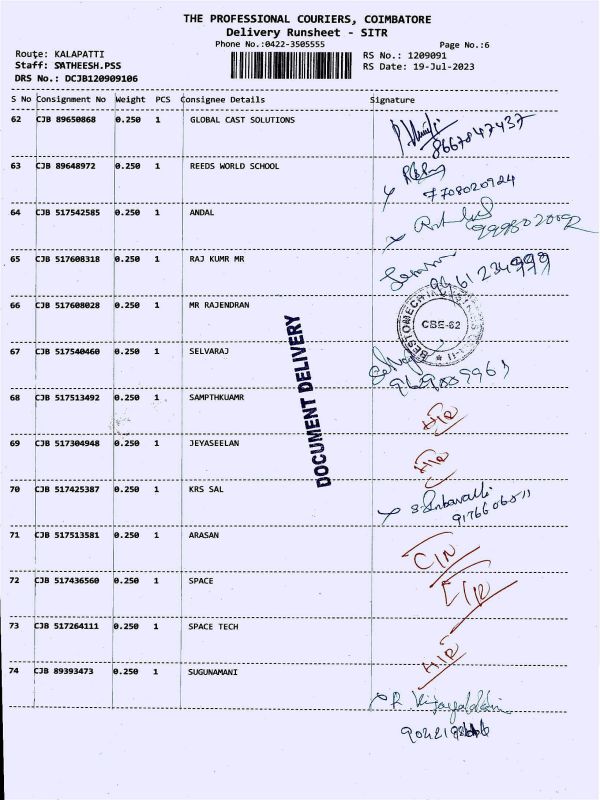 THE PROFESSIONAL COURIERS, COIMBATORE
Delivery Runsheet - SITR
Phone No.:0422-3505555 Page No.:6
Route: KALAPATTI RS No.: 1209091
Staff: SATHEESH.PSS RS Date: 19-Jul-2023
DRS No.: DCJB120909106
S No Consignment No Weight PCS Consignee Details Signature
62 CJB 89650868 0.250 1 GLOBAL CAST SOLUTIONS
8667847437
63 CJB 89648972 0.250 1 REEDS WORLD SCHOOL
7708020924
64 CJB 517542585 0.250 1 ANDAL
65 CJB 517608318 0.250 1 RAJ KUMR MR
66 CJB 517608028 0.250 1 MR RAJENDRAN
CBE-62
67 CJB 517540460 0.250 1 SELVARAJ
DOCUMENT DELIVERY
68 CJB 517513492 0.250 1 SAMPTHKUAMR
69 CJB 517304948 0.250 1 JEYASEELAN
70 CJB 517425387 0.250 1 KRS SAL
71 CJB 517513581 0.250 1 ARASAN
72 CJB 517436560 0.250 1 SPACE
73 CJB 517264111 0.250 1 SPACE TECH
74 CJB 89393473 0.250 1 SUGUNAMANI